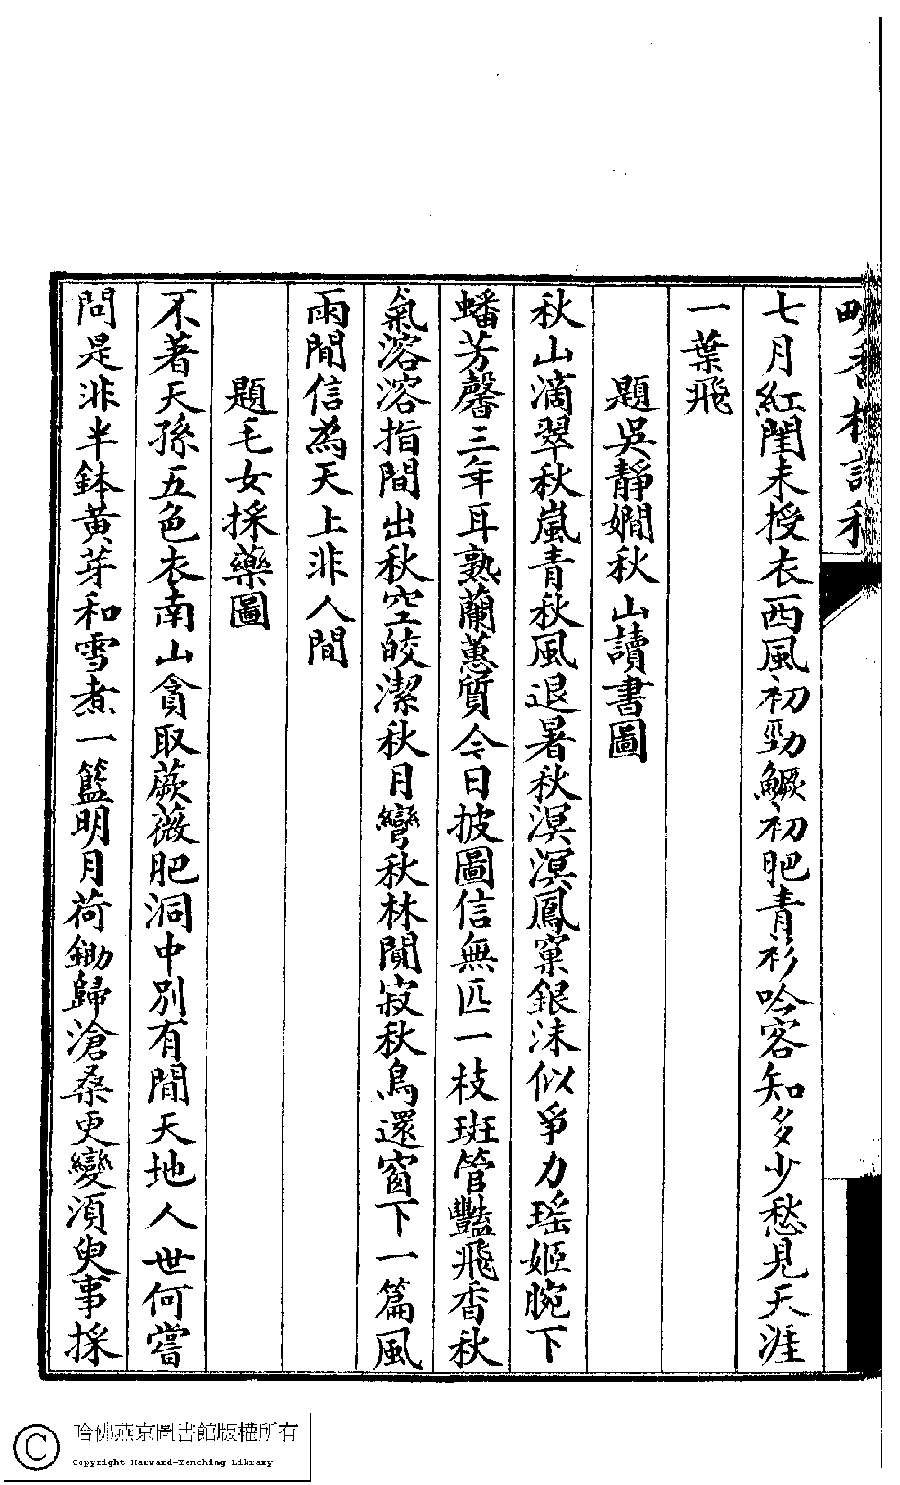 七月紅閨未授衣西風初勁鱖初肥青衫吟客知多少愁見天涯
一葉飛
題吳靜嫺秋山讀書圖
秋山滴翠秋嵐青秋風退暑秋溟溟鳳窠銀沫似爭力瑤姬腕下
蟠芳馨三年耳熟蘭蕙質今日披圖信無匹一枝斑管豔飛香秋
氣溶溶指間出秋空皎潔秋月彎秋林閴寂秋鳥還窗下一篇風
雨閒信為天上非人間
題毛女採藥圖
不著天孫五色衣南山貪取蕨薇肥洞中別有閒天地人世何嘗
問是非半鉢黃芽和雪煮一籃明月荷鋤歸滄桑更變湏臾事採
哈佛燕京圖書館版權所有
Copyright Harvard-Yenching Library